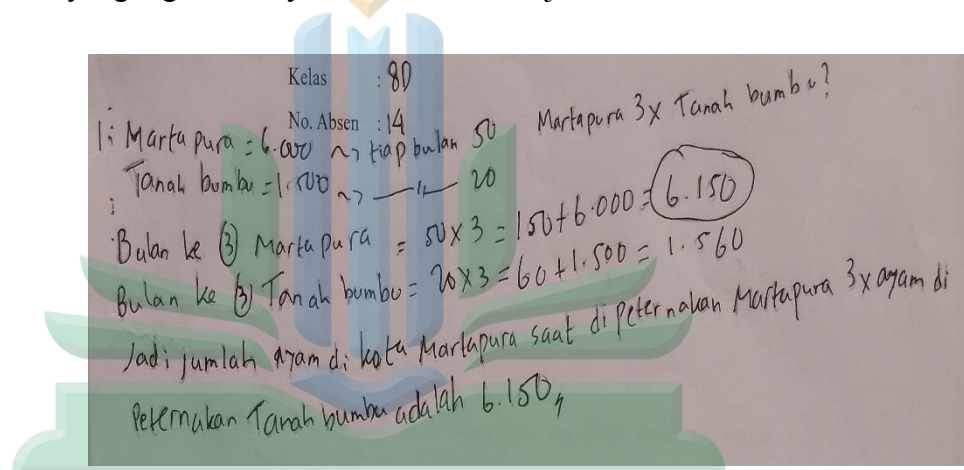 Kelas : 8D
No. Absen : 14
1. Martapura = 6.000 ~> tiap bulan 50 Martapura 3x Tanah bumbu?
Tanah bumbu = 1.500 ~> —〃— 20
Bulan ke (3) Martapura = 50x3 = 150+6.000 = 6.150
Bulan ke (3) Tanah bumbu = 20x3 = 60+1.500 = 1.560
Jadi jumlah ayam di kota Martapura saat di peternakan Martapura 3x ayam di
Peternakan Tanah bumbu adalah 6.150,,